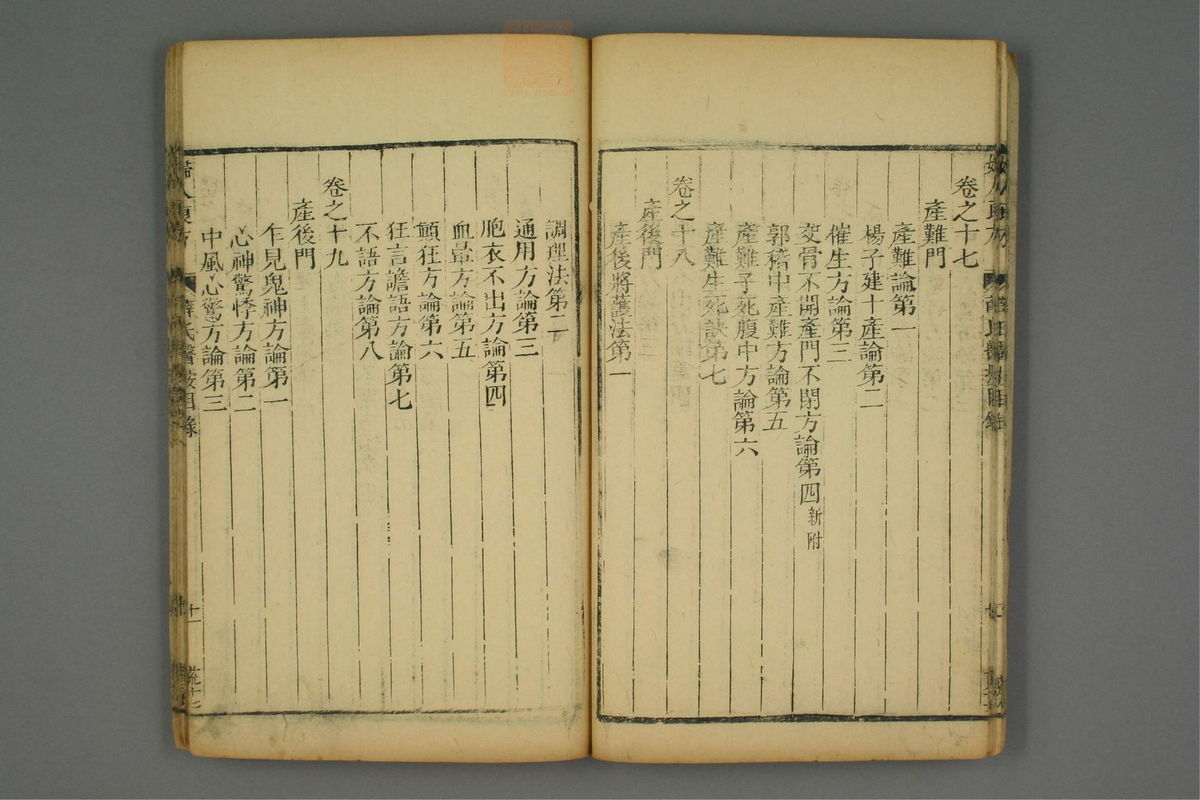 卷之十七
產難門
產難論第一
楊子建十產論第二
催生方論第三
交骨不開產門不閉方論第四新附
郭稽中產難方論第五
產難子死腹中方論第六
產難生死訣第七
卷之十八
產後門
產後將護法第一
調理法第二
通用方論第三
胞衣不出方論第四
血暈方論第五
顫狂方論第六
狂言譫語方論第七
不語方論第八
卷之十九
產後門
乍見鬼神方論第一
心神驚悸方論第二
中風心驚方論第三
婦人良方 薛氏醫案目錄
十一